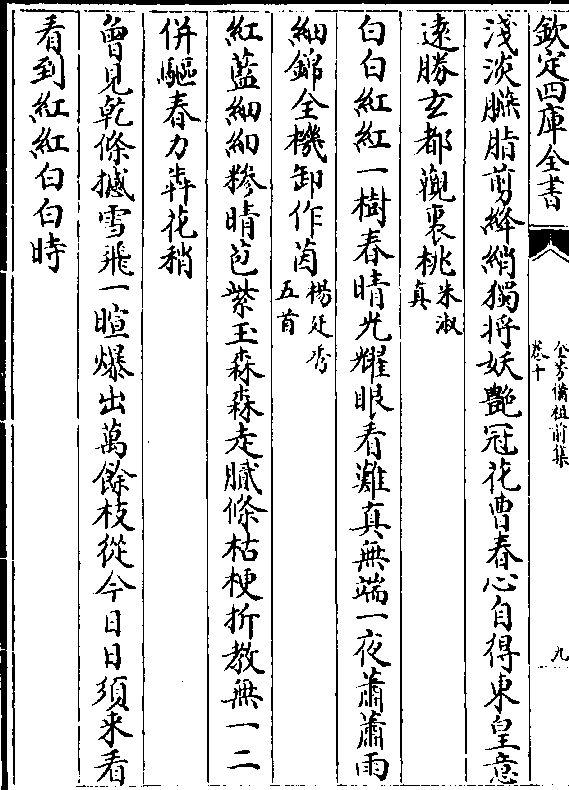 欽定四庫全書
全芳備祖前集
卷十
九
淺淡臙脂剪絳綃獨将妖艷冠花曹春心自得東皇意
遠勝玄都觀裏桃朱淑真
白白紅紅一樹春晴光耀眼看難真無端一夜蕭蕭雨
細錦全機卸作茵楊廷秀五首
紅藍細細糝晴苞紫玉森森走膩條枯梗折教無一二
併驅春力犇花稍
曾見乾條撼雪飛一暄爆出萬餘枝從今日日須来看
看到紅紅白白時